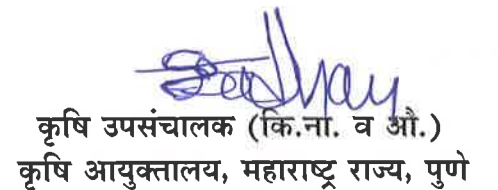 कृषि उपसंचालक (कि.ना. व औ.)
कृषि आयुक्तालय, महाराष्ट्र राज्य, पुणे